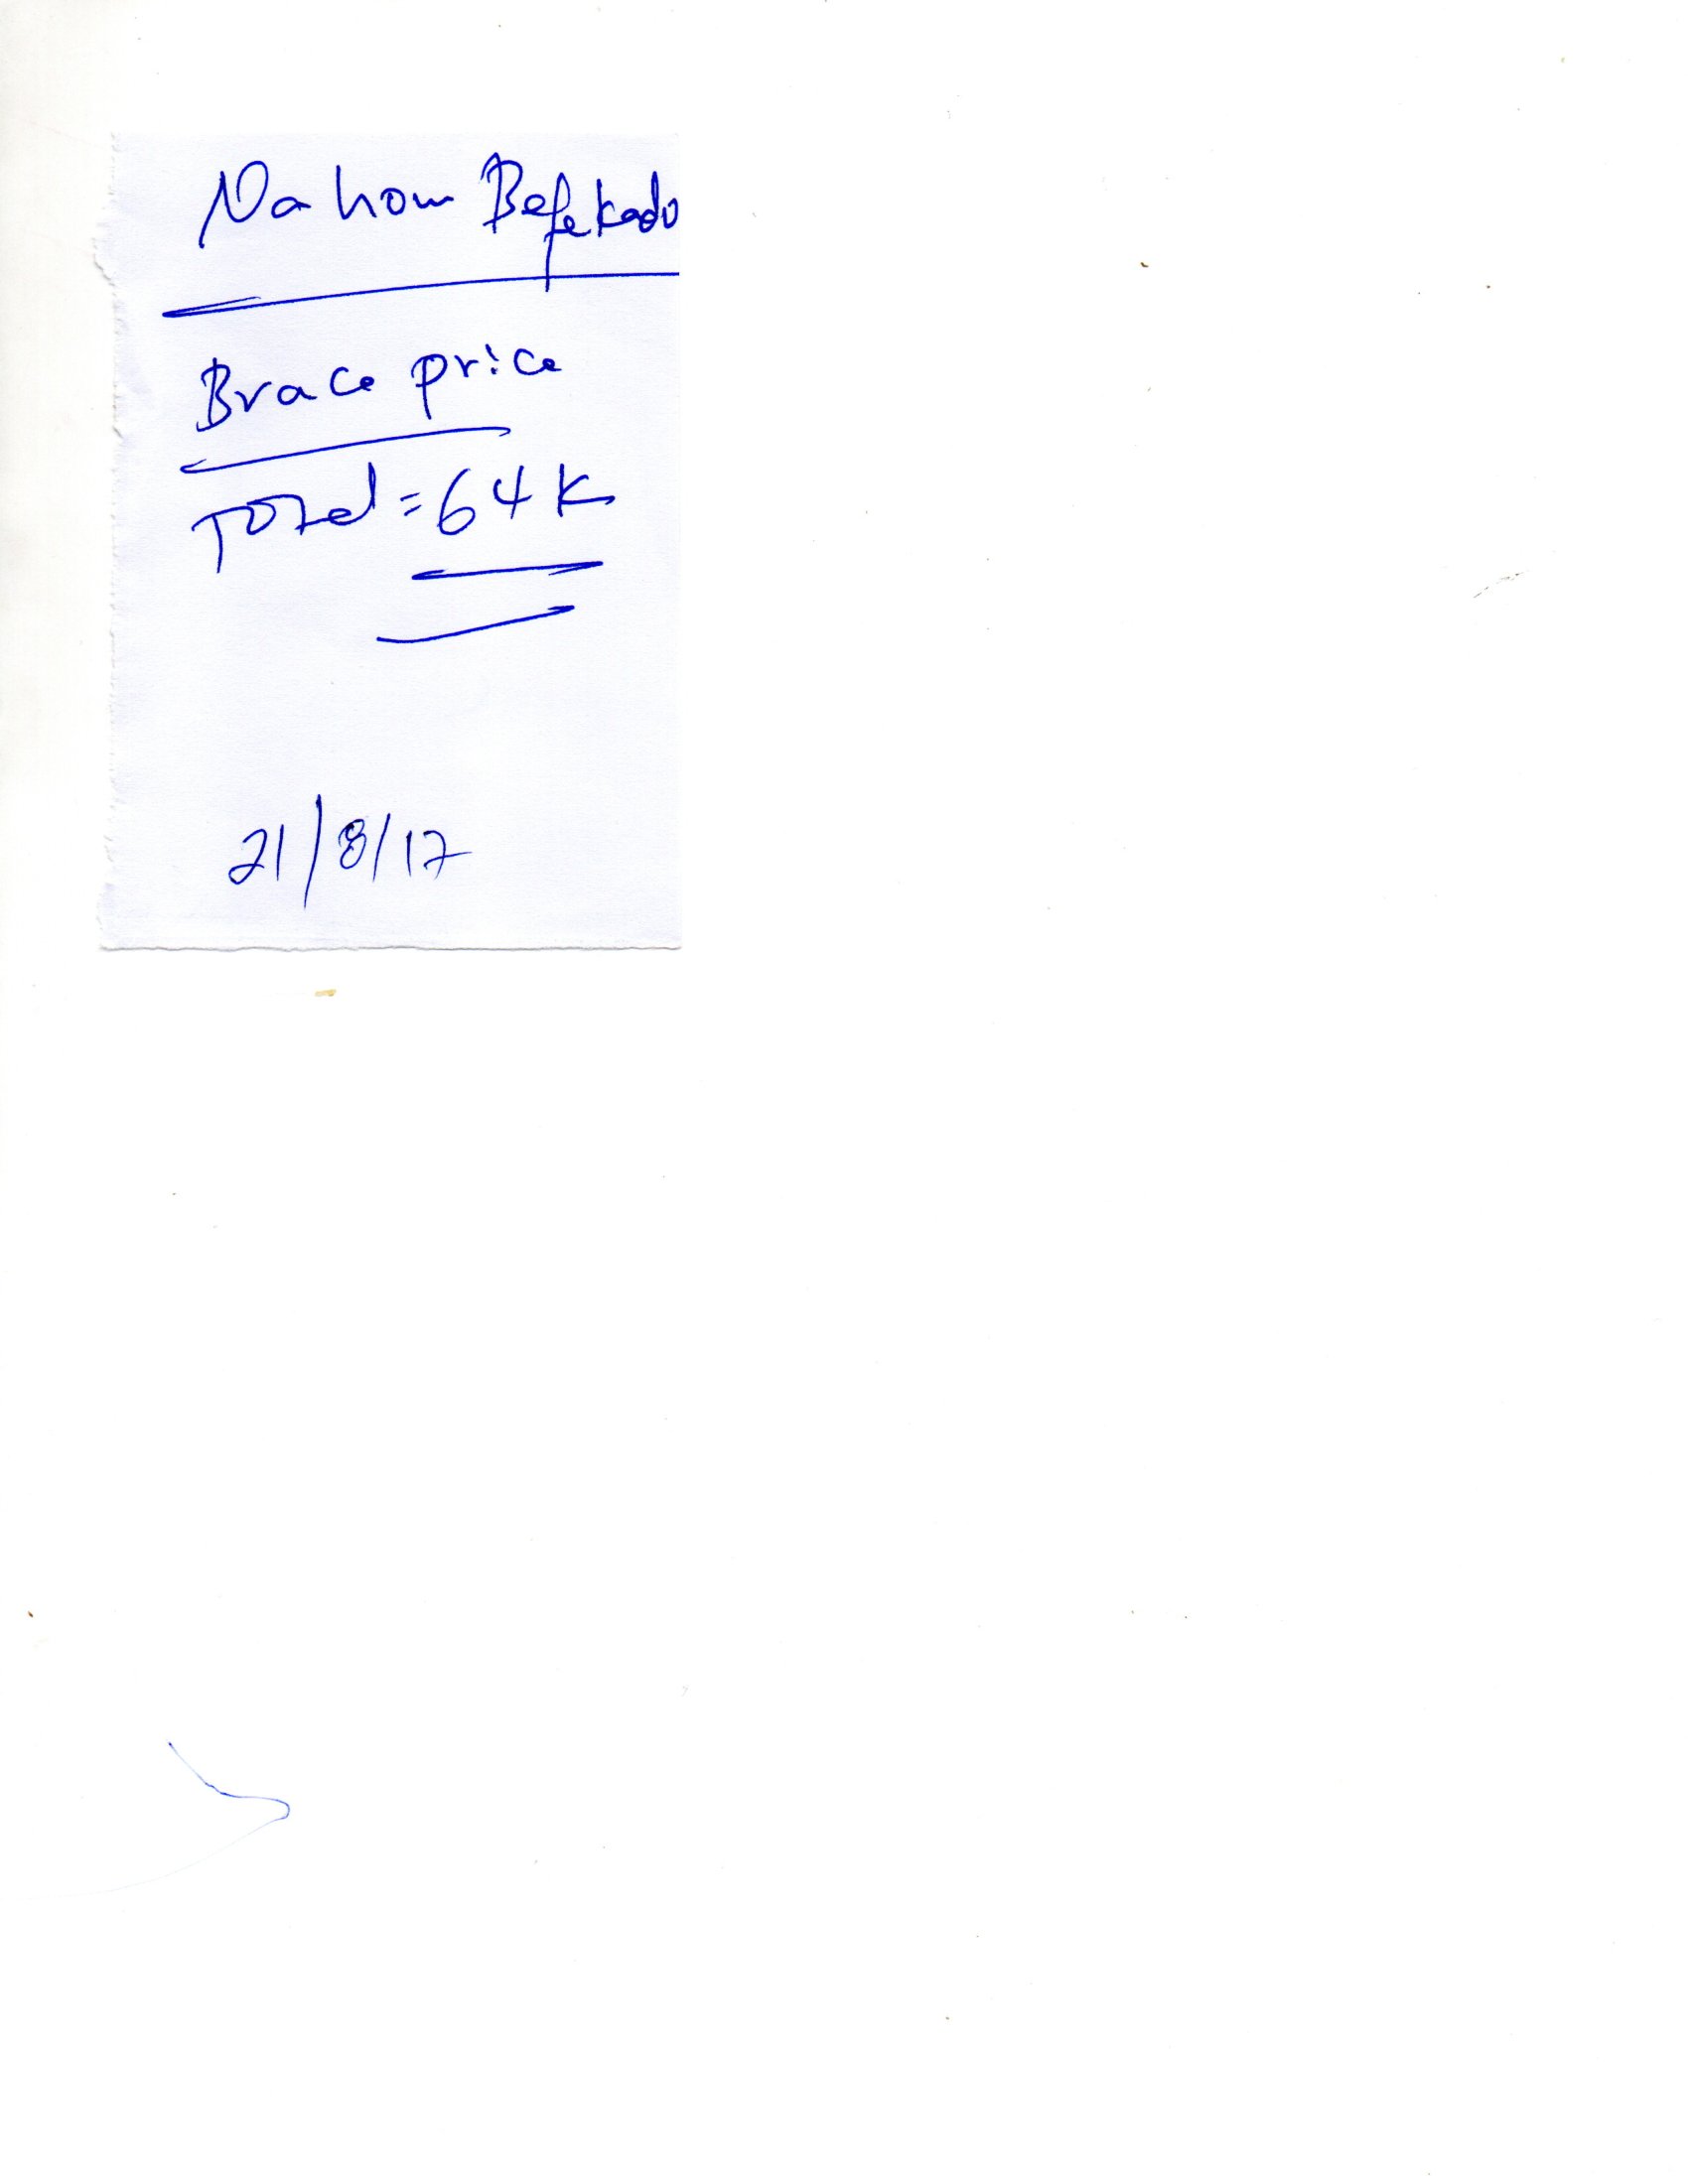 Nahom Befekadu
Brace price
Total = 64K
21/8/17